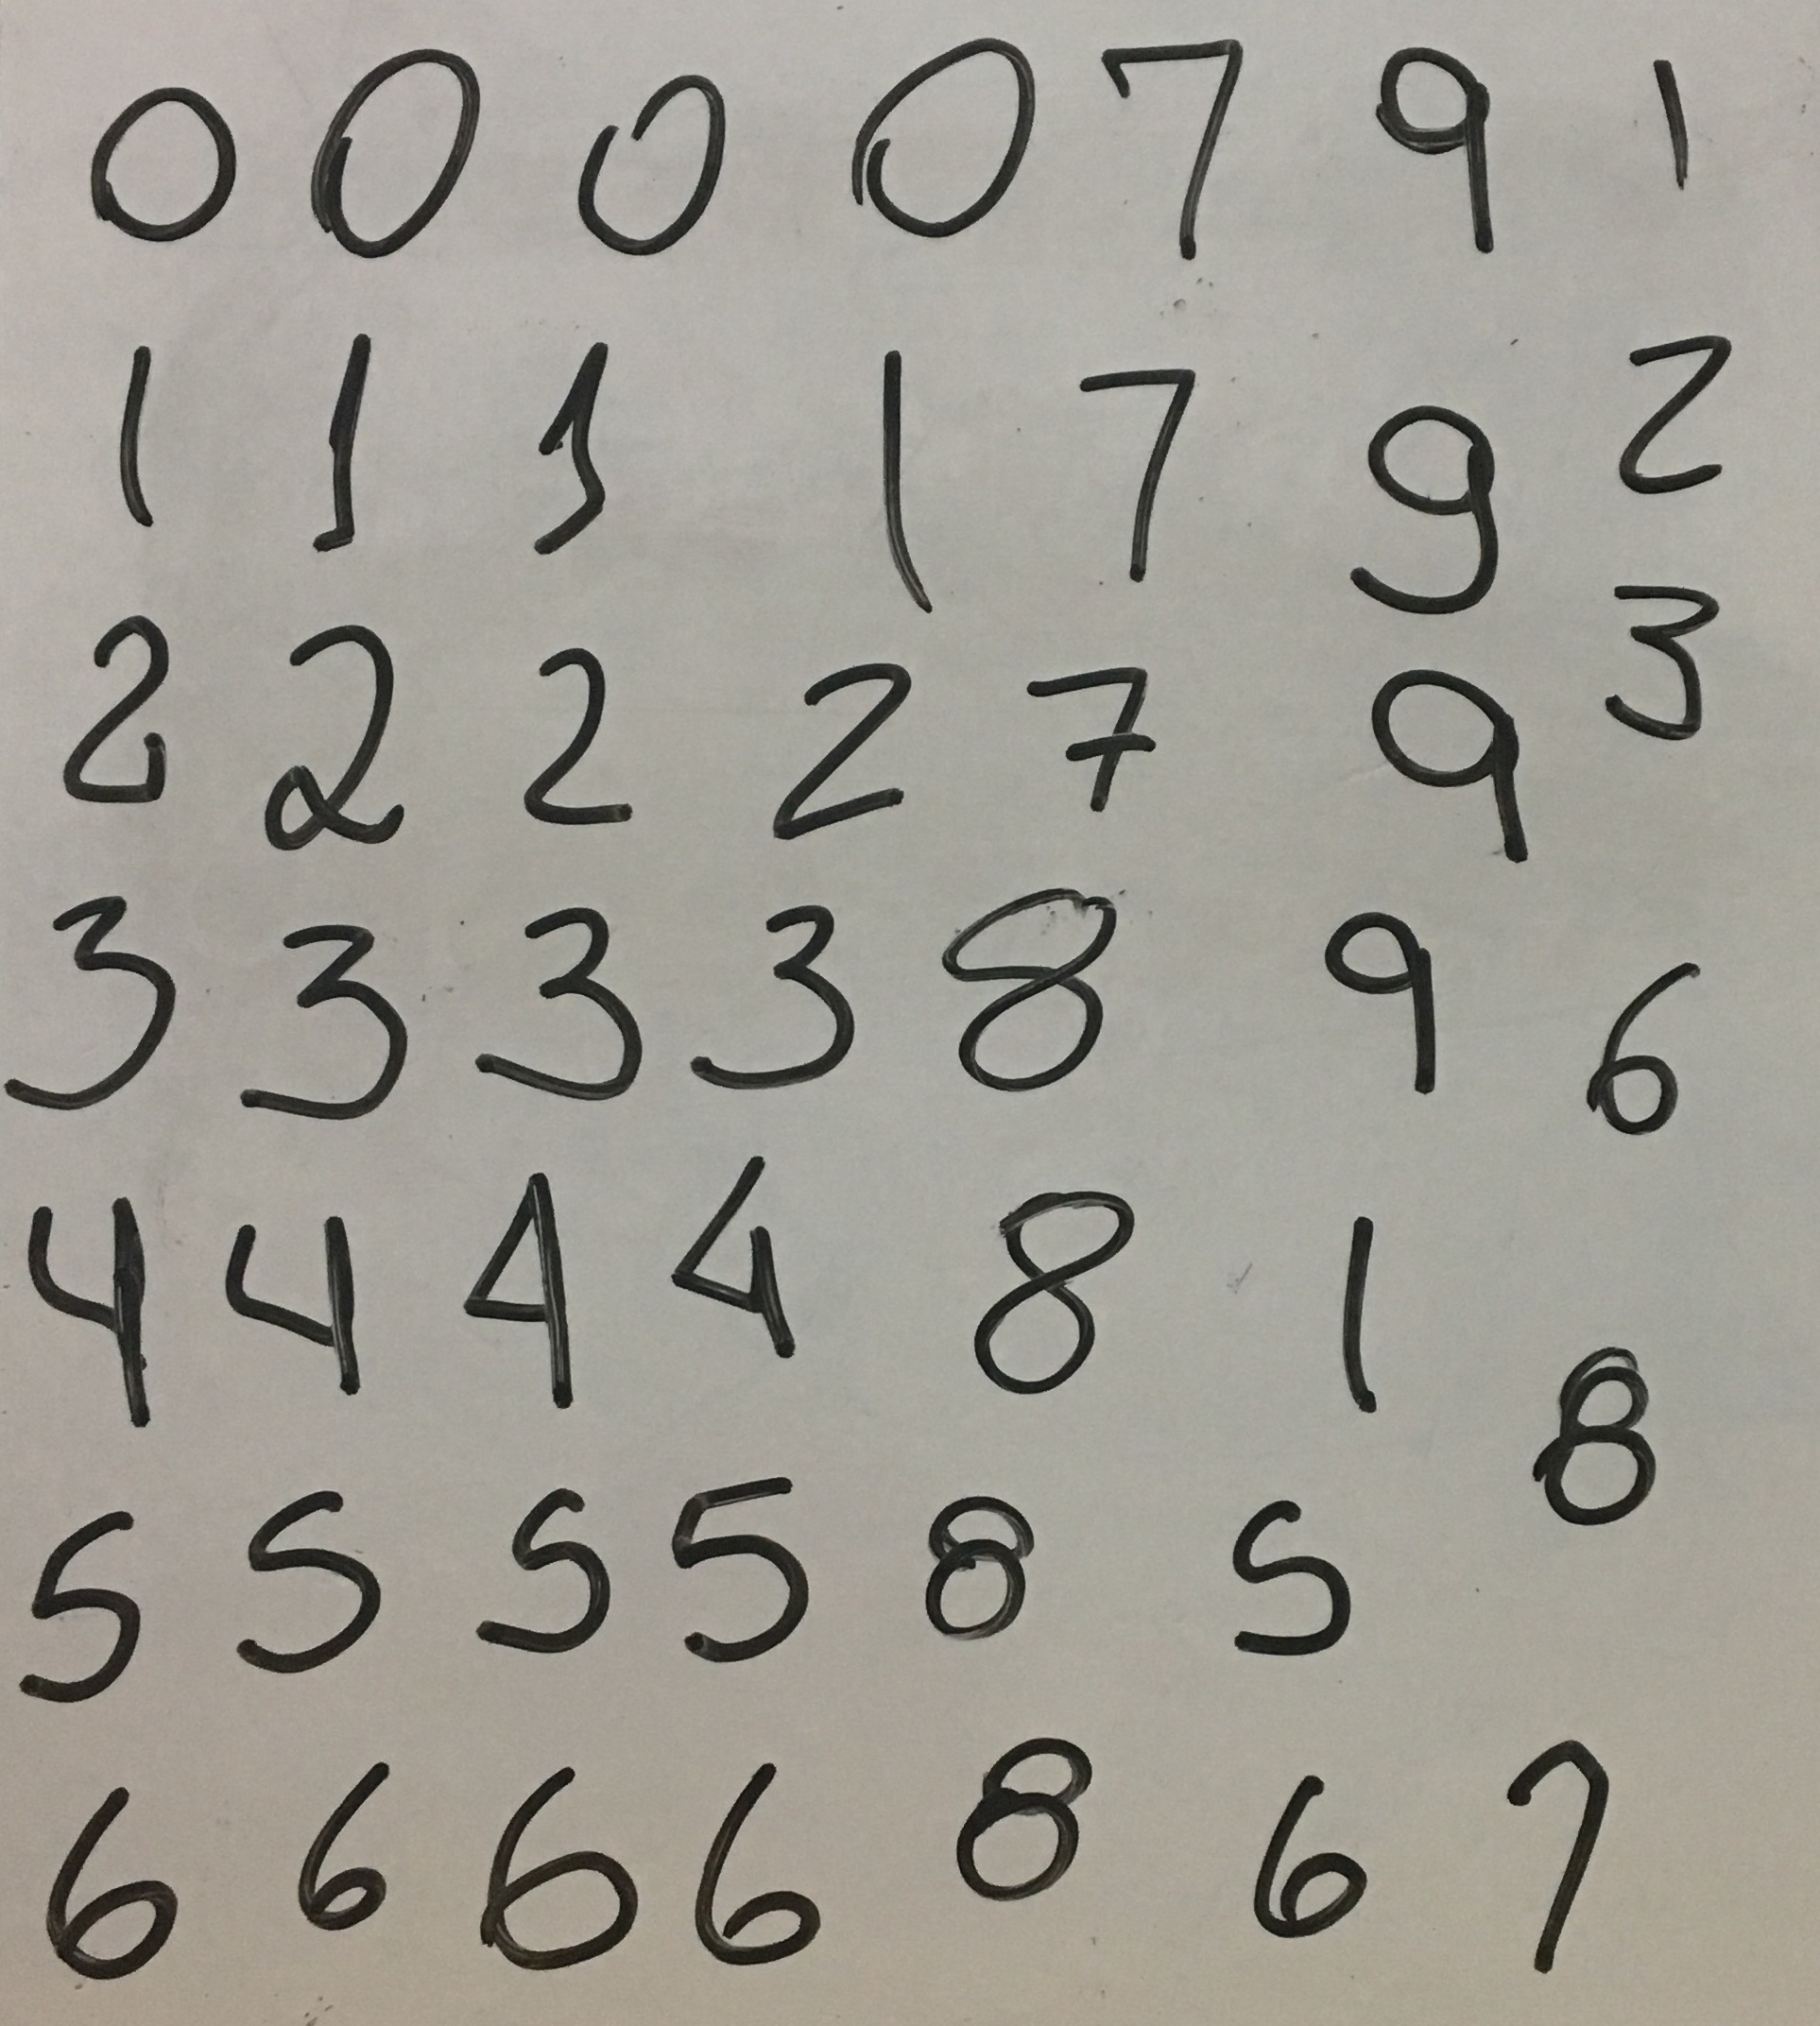 0 0 0 0 7 9 1
1 1 1 1 7 9 2
2 2 2 2 7 9 3
3 3 3 3 8 9 6
4 4 4 4 8 1 8
5 5 5 5 8 5
6 6 6 6 8 6 7